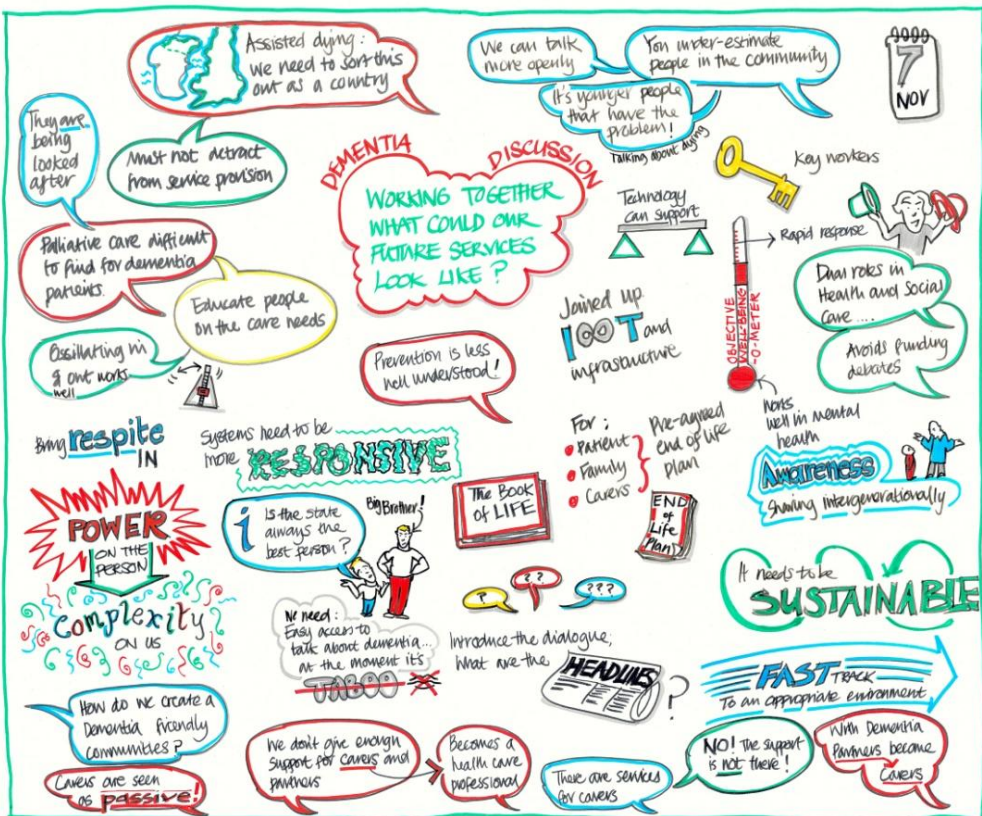 Assisted dying:
we need to sort this
out as a country
We can talk
more openly
You under-estimate
people in the community
It's younger people
that have the
problem!
Talking about dying
7
NOV
They are
being
looked
after
Must not detract
from service provision
DEMENTIA DISCUSSION
WORKING TOGETHER
WHAT COULD OUR
FUTURE SERVICES
LOOK LIKE?
Key workers
Technology
can support
Rapid response
Palliative care difficult
to find for dementia
patients.
Educate people
on the care needs
Dual roles in
Health and Social
Care ....
Avoids funding
debates
Joined up
IT and
infrastructure
OBJECTIVE
WELL-BEING
-O-METER
Ossillating in
& out works
well
Prevention is less
well understood!
Works
well in mental
health
Bring respite
IN
Systems need to be
more RESPONSIVE
For:
Patient
Family
Carers
Pre-agreed
end of life
plan
Awareness
Sharing intergenerationally
POWER
ON THE
PERSON
complexity
ON US
i Is the state
always the
best person?
Big Brother!
The Book
of LIFE
END
of
Life
Plan
It needs to be
SUSTAINABLE
? ?? ???
We need:
Easy access to
talk about dementia...
at the moment it's
TABOO
Introduce the dialogue;
What are the
HEADLINES ?
FAST TRACK
To an appropriate environment
How do we create a
Dementia friendly
communities?
Carers are seen
as passive!
We don't give enough
support for carers and
partners
Becomes a
health care
professional
There are services
for carers
NO! The support
is not there!
With Dementia
Partners become
Carers